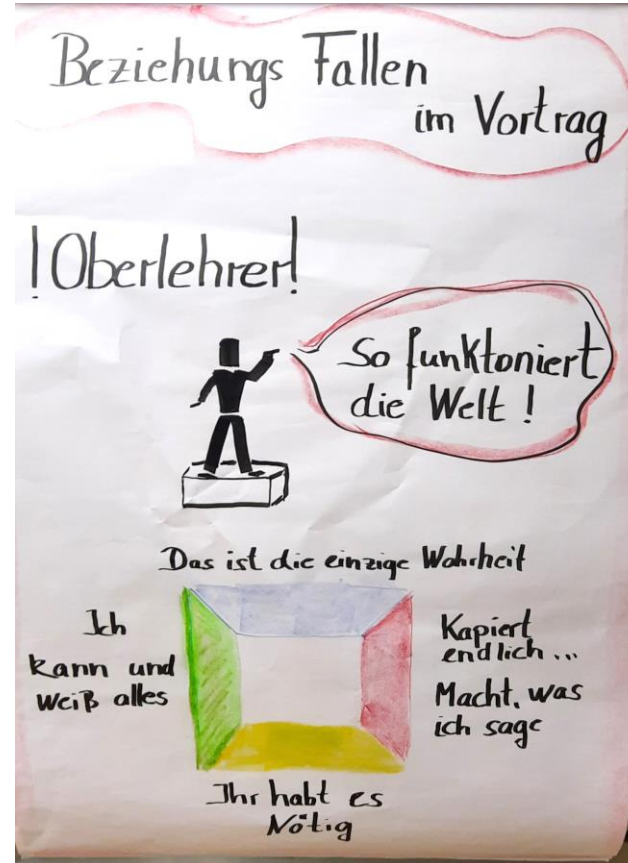 Beziehungs Fallen
im Vortrag
!Oberlehrer!
So funktoniert
die Welt !
Das ist die einzige Wahrheit
Ich
kann und
weiß alles
Kapiert
endlich ...
Macht, was
ich sage
Ihr habt es
Nötig